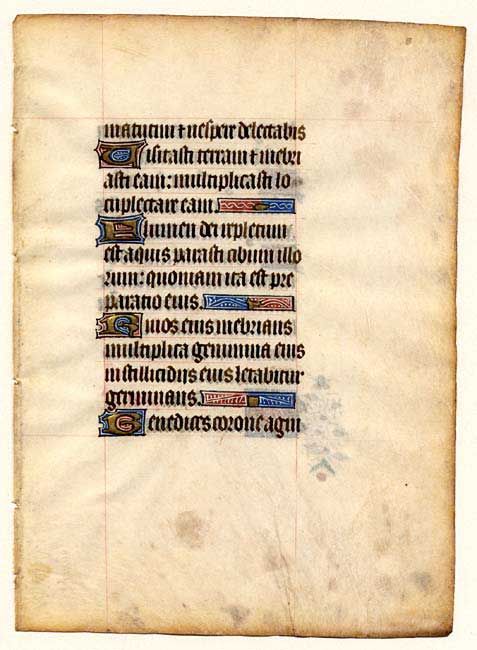 matutini ⁊ vespere delectabis
Visitasti terram ⁊ inebri
asti eam: multiplicasti lo
cupletare eam.
Flumen dei repletum
est aquis parasti cibum illo
rum: quoniam ita est pre
paratio eius.
Riuos eius inebrians
multiplica genimina eius
in stillicidiis eius letabitur
germinans.
Benedices corone agni